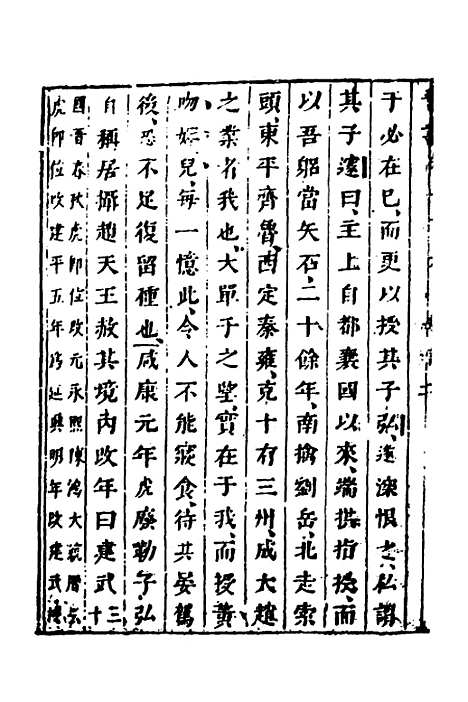 于必在已而更以授其子弘遂深恨之私謂
其子邃曰主上自都襄國以來端拱指授而
以吾躬當矢石二十餘年南擒劉岳北走索
頭東平齊魯西定秦雍克十有三州成大趙
之業者我也大單于之望實在于我而授黃
吻婢兒每一憶此令人不能寢食待其晏駕
後恐不足復留種也咸康元年虎廢勒子弘
自稱居攝趙天王赦其境内改年曰建武三十
國晉春秋虎即位改元永熙陳鴻大統曆云
虎即位改建平五年為延興明年改建武